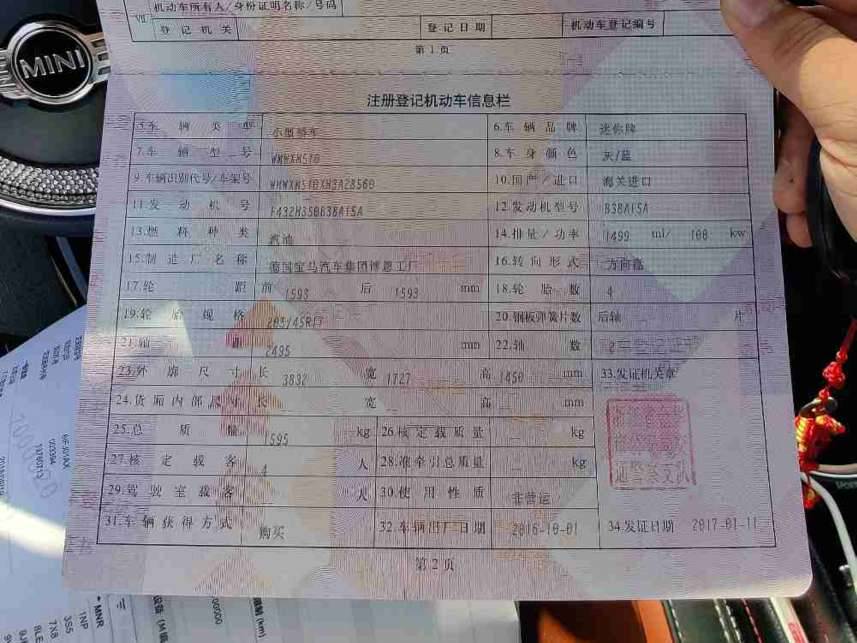 MINI
Ⅶ 机动车所有人/身份证明名称/号码
登记机关 登记日期 机动车登记编号
第1页
注册登记机动车信息栏
5.车辆类型 小型轿车 6.车辆品牌 迷你牌
7.车辆型号 WMWXM510 8.车身颜色 灰/蓝
9.车辆识别代号/车架号 WMWXM510XH3A28560 10.国产/进口 海关进口
11.发动机号 F432H350B38A15A 12.发动机型号 B38A15A
13.燃料种类 汽油 14.排量/功率 1499 ml/ 100 kw
15.制造厂名称 德国宝马汽车集团 工厂 16.转向形式 方向盘
17.轮距 前 1593 后 1593 mm 18.轮胎数 4
19.轮胎规格 20.钢板弹簧片数 后轴 片
21.轴距 2495 mm 22.轴数 2
23.外廓尺寸 长 3832 宽 1727 高 1450 mm 33.发证机关章
24.货厢内部尺寸 长 宽 高 mm
25.总质量 1595 kg 26.核定载质量 kg
27.核定载客 4 人 28.准牵引总质量 kg
29.驾驶室载客 人 30.使用性质 非营运
31.车辆获得方式 购买 32.车辆出厂日期 2016-10-01 34.发证日期 2017-01-11
第2页
MNR
1NP
3S5
7X8
8LE